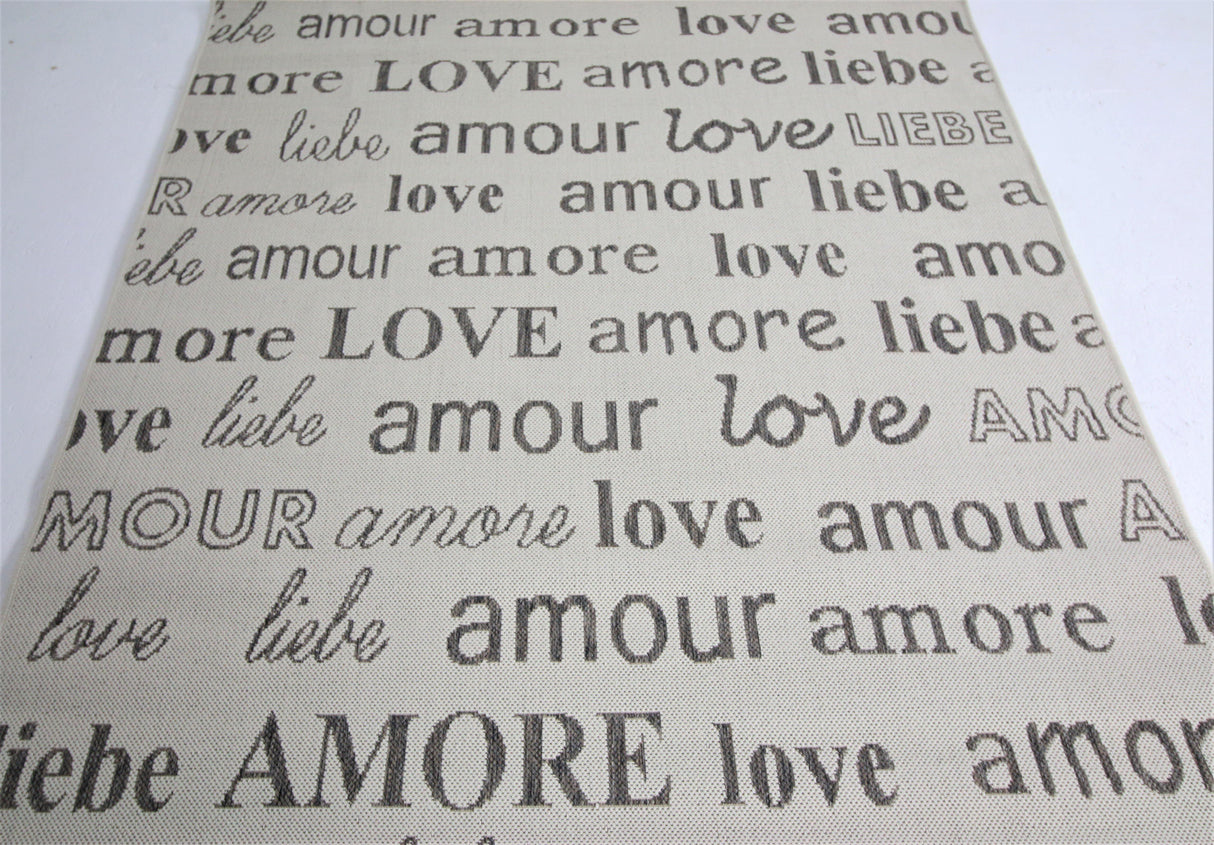 iebe amour amore love amou
more LOVE amore liebe a
ove liebe amour love LIEBE
R amore love amour liebe a
ebe amour amore love amo
more LOVE amore liebe a
ove liebe amour love AMO
MOUR amore love amour A
love liebe amour amore lo
liebe AMORE love amor